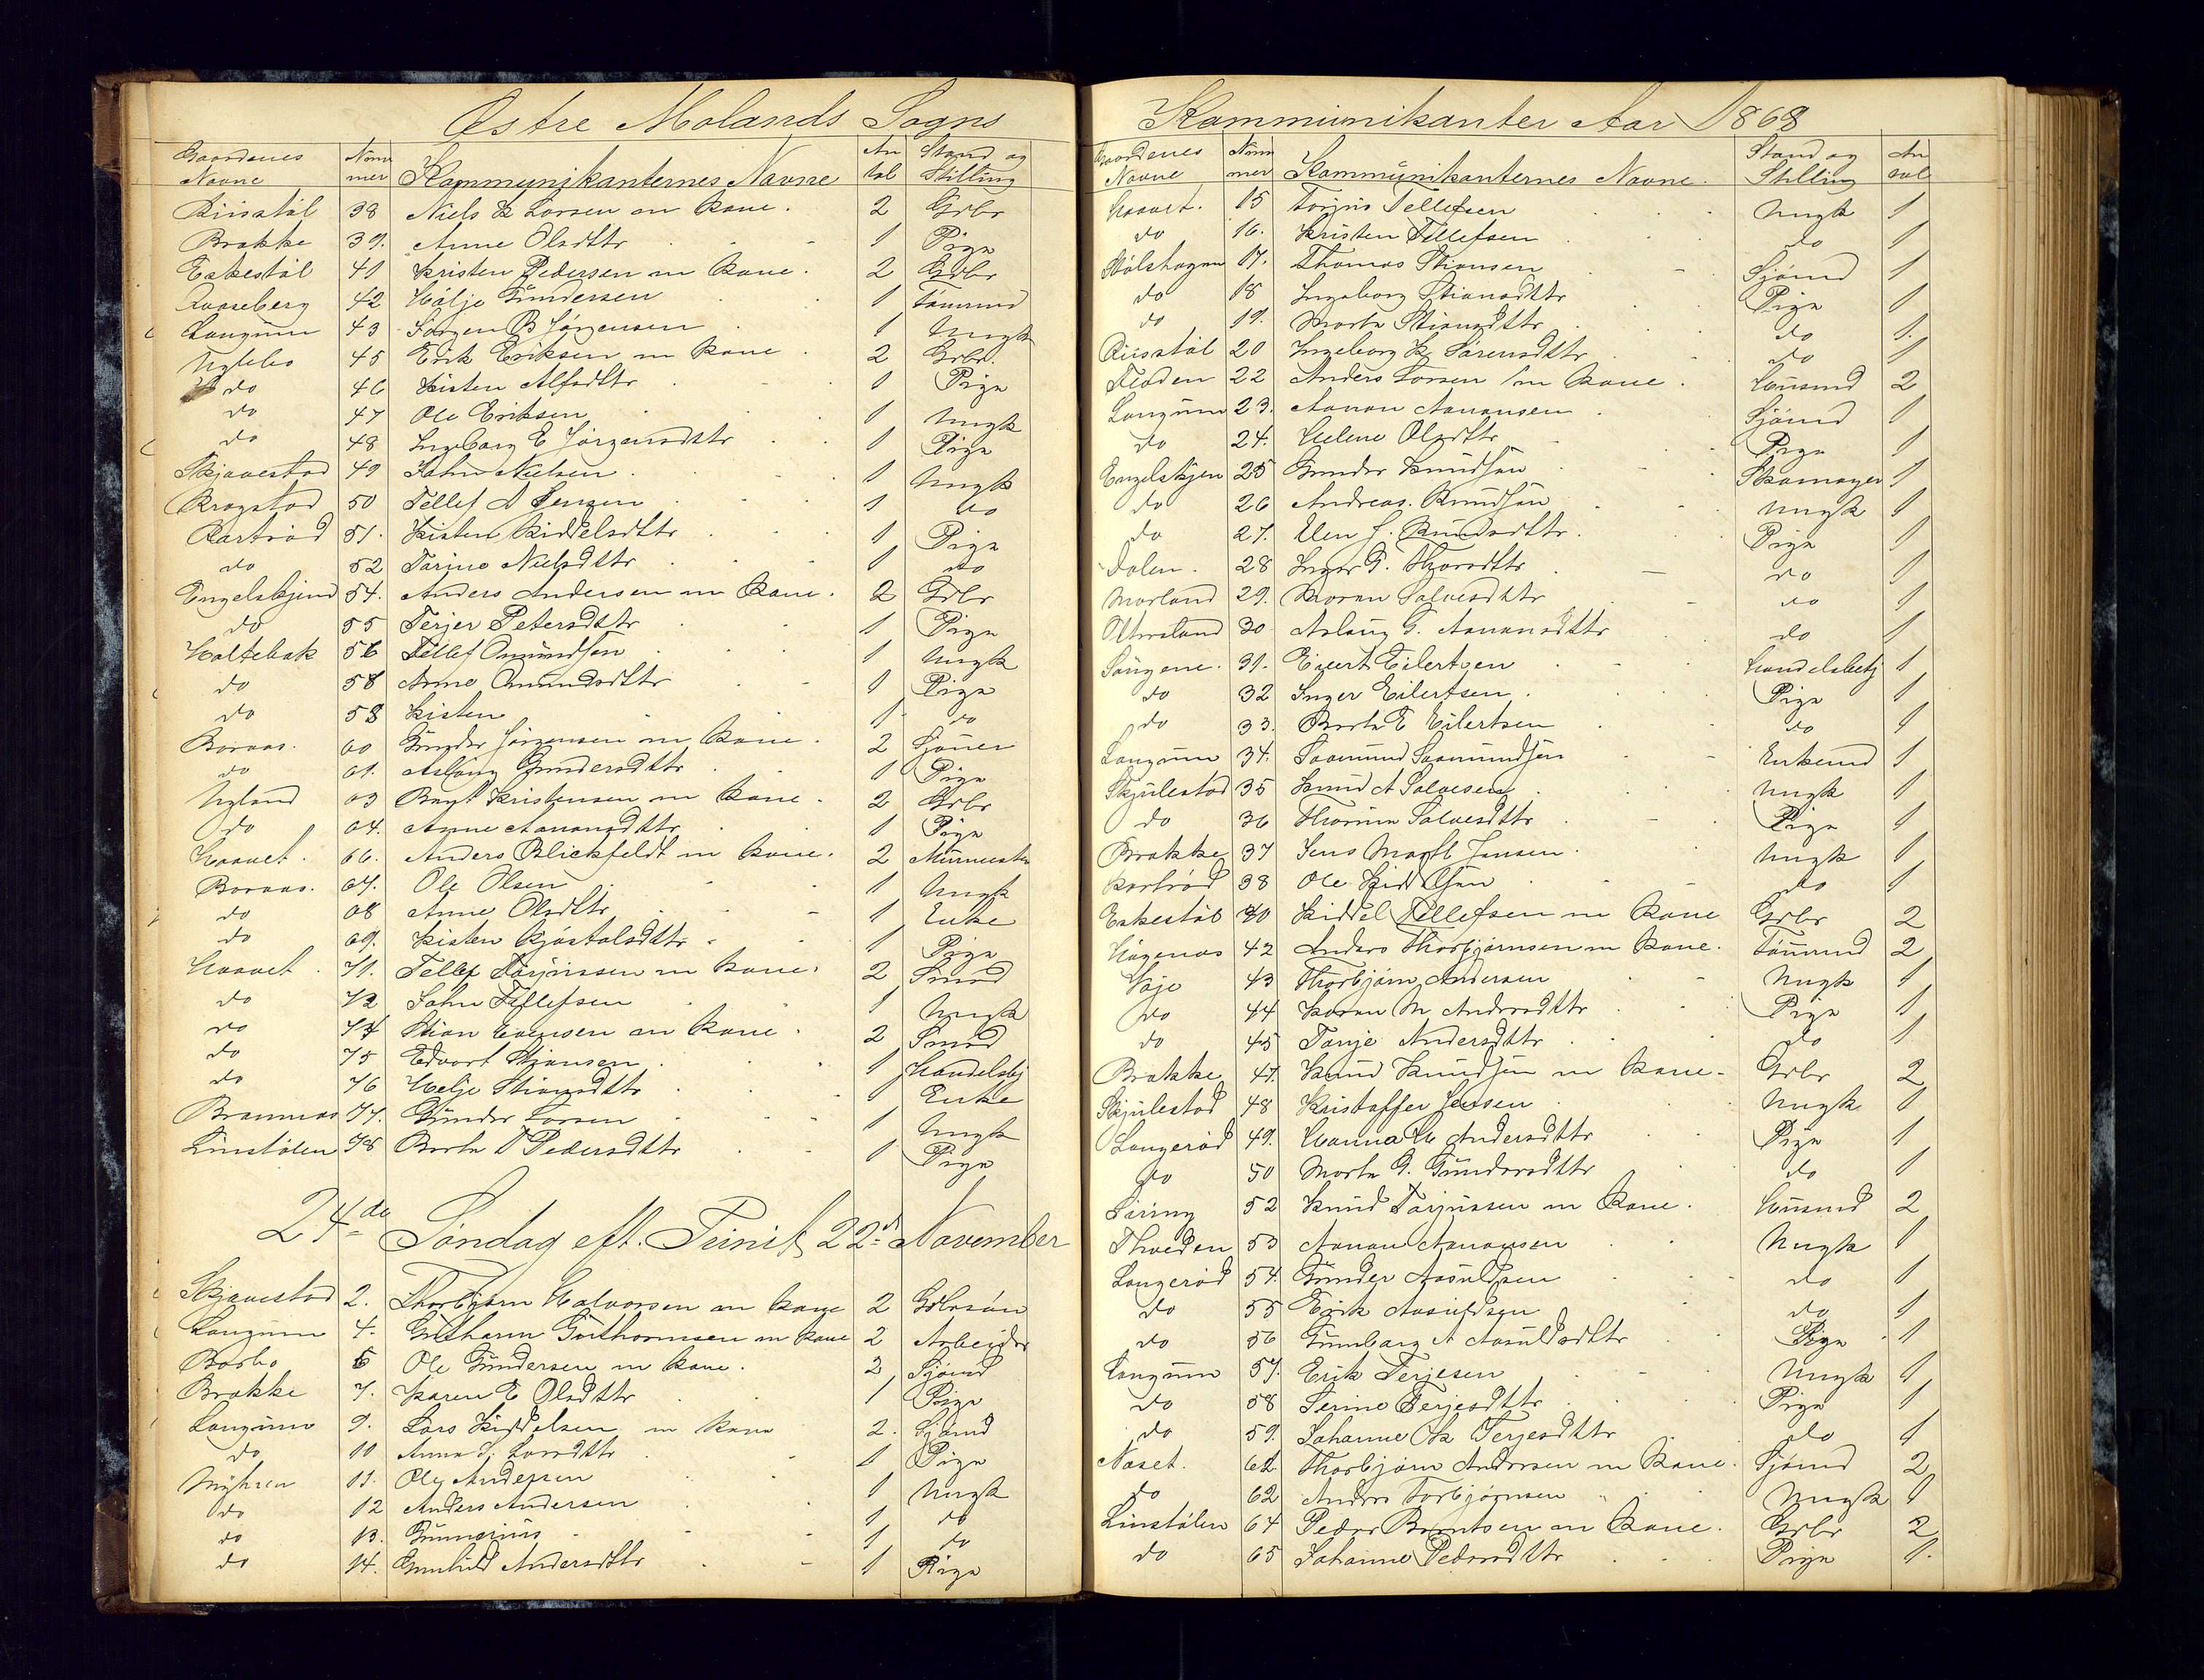 Østre Molands Sogns
Gaardenes Navne Nummer Kommunikanternes Navne Antal Stand og Stilling
Riisstøl 38 Niels K Larsen m Kone. 2 Grbr
Brække 39. Anne Olsdttr 1 Pige
Eskestøl 41 Kristen Pedersen m Kone. 2 Grbr
42 Gundersen 1 Tømmd
Langum 43 Jørgen B Jørgensen 1 Ungk
45 Erik Eriksen m Kone 2 Grbr.
do 46 Kisten Alfsdttr 1 Pige
do 47 Ole Eriksen 1 Ungk
do 48 Ingeborg E Jørgensdttr 1 Pige
Skjævestad 49 John Nielsen 1 Ungk
Krogstad 50 Tellef A Jensen 1 do
51. Kisten Kiddelsdttr 1 Pige
do 52 Tarine Nielsdttr 1 do
Engelskjend 54. Anders Andersen m Kone. 2 Grbr
do 55 Terjer Petersdttr 1 Pige
Holtebæk 56 Tellef Omundsen 1 Ungk
do 58 Anne Omundsdttr 1 Pige
do 58 Kisten 1 do
Boraas. 60 Gunder Jørgensen m Kone. 2
do 61. Aslaug Gundersdttr 1 Pige
Nyland 63 Bent Kristensen m Kone. 2 Grbr
do 64. Anne Aanonsdttr 1 Pige
Haavet. 66. Anders Blickfeldt m Kone. 2 Murmester
Boraas. 67. Ole Olsen 1 Ungk
do 68 Anne Olsdttr 1 Enke
do 69. Kisten Kjøstolsdttr 1 Pige
Haavet. 71. Tellef Torjussen m Kone. 2 Smed
do 72 John Tellefsen 1 Ungk
do 74 Stian Evensen m Kone. 2 Smed
do 75 Edvart Stiansen 1 Handelsbj
do 76 Helje Stiansdttr 1 Enke
77. Gunder Larsen 1 Ungk
Linstølen 78 Berte Pedersdttr 1 Pige
24de Søndag eft. Trinit. 22d November
Skjævestad 2. Thorbjørn Halvorsen m Kone 2 Grbrsøn
Langum 4. Guttorm Guthormsen m Kone 2 Arbeider
Borbo 6 Ole Gundersen m Kone. 2 Sjømd
Brække 7. Karen E Olsdttr 1 Pige
Langum 9. Lars Kiddelsen m Kone 2. Sjømd
do 10 Anne J. Larsdttr 1 Pige
Myhren 11. Ole Andersen 1 Ungk
do 12 Anders Andersen 1 do
do 13. Gunnerius 1 do
do 14. Gunhild Andersdttr 1 Pige
Kommunikanter Aar 1868
Gaardenes Navne Nummer Kommunikanternes Navne. Stand og Stilling Antal
Haavet. 15 Torjus Tellefsen Ungk 1
do 16. Kristen Tellefsen do 1
Stølshagen 17. Thomas Stiansen Sjømd 1
do 18 Ingeborg Stiansdttr Pige 1
do 19. Marte Stiansdttr do 1.
Riisstøl 20 Ingeborg K. Sørensdttr do 1
Fløden 22 Anders Larsen m Kone. Husmd 2
Langum 23. Aanon Aanonsen Sjømd 1
do 24. Helene Olsdttr Pige 1
Engelskjen 25 Gunder Knudsen Skomager 1
do 26 Andreas Knudsen Ungk 1
do 27. Elen J. Knudsdttr. Pige 1
Dalen. 28 Inger T. Thorsdttr do 1
Morland 29. Maren Salvesdttr do 1
Otterland 30 Aslaug G. Aanonsdttr do 1
Saugene. 31. Evert Eilertsen Handelsbetj 1
do 32 Inger Eilertsen. Pige 1
do 33. Berte E Eilertsen do 1
Langum 34. Saamund Saamundsen Enkemd 1
Skjulestad 35 Knud A Salvesen Ungk 1
do 36 Thorine Salvesdttr Pige 1
Brække 37 Jens Jensen. Ungk 1
38 Ole Kiddelsen do 1
Eskestøl 40 Kiddel Tellefsen m Kone Grbr 2
42 Anders Thorbjørnsen m Kone. Tømmd 2
43 Thorbjørn Andersen Ungk 1
do 44 Karen M Andersdttr Pige 1
do 45 Tonje Andersdttr do 1
Brække 47. Knud Knudsen m Kone. Grbr 2
Skjulestad 48 Kristoffer Jensen Ungk 1
Langerød 49. Hanna M Andersdttr Pige 1
do 50 Marte G. Gundersdttr do 1
52 Knud Torjussen m Kone. Husmd 2
Thveden 53 Aanon Aanonsen Ungk 1
Langerød 54. Gunder Aasuldsen do 1
do 55 Erik Aasuldsen do 1
do 56 Gumborg A Aasuldsdttr Pige 1
Langum 57. Erik Terjesen Ungk 1
do 58 Serine Terjesdttr Pige 1
do 59. Johanne K Terjesdttr do 1
Næset. 62 Thorbjørn Andersen m Kone. Sjømd 2
do 62 Anders Torbjørnsen Ungk 1
Linstølen 64 Peder Berntsen m Kone. Grbr 2
do 65 Johanne Pedersdttr Pige 1.